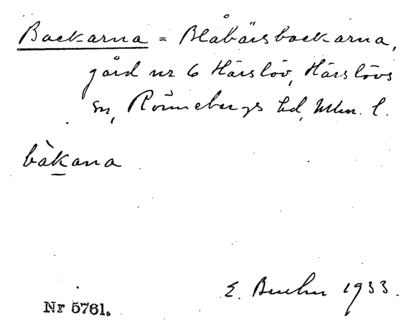 Backarna = Blåbärsbackarna,
gård nr 6 Härslöv, Härslövs
sn, Rönnebergs hd, Mlm. l.
bàkana
E. Bruhn 1933.
Nr 5761.